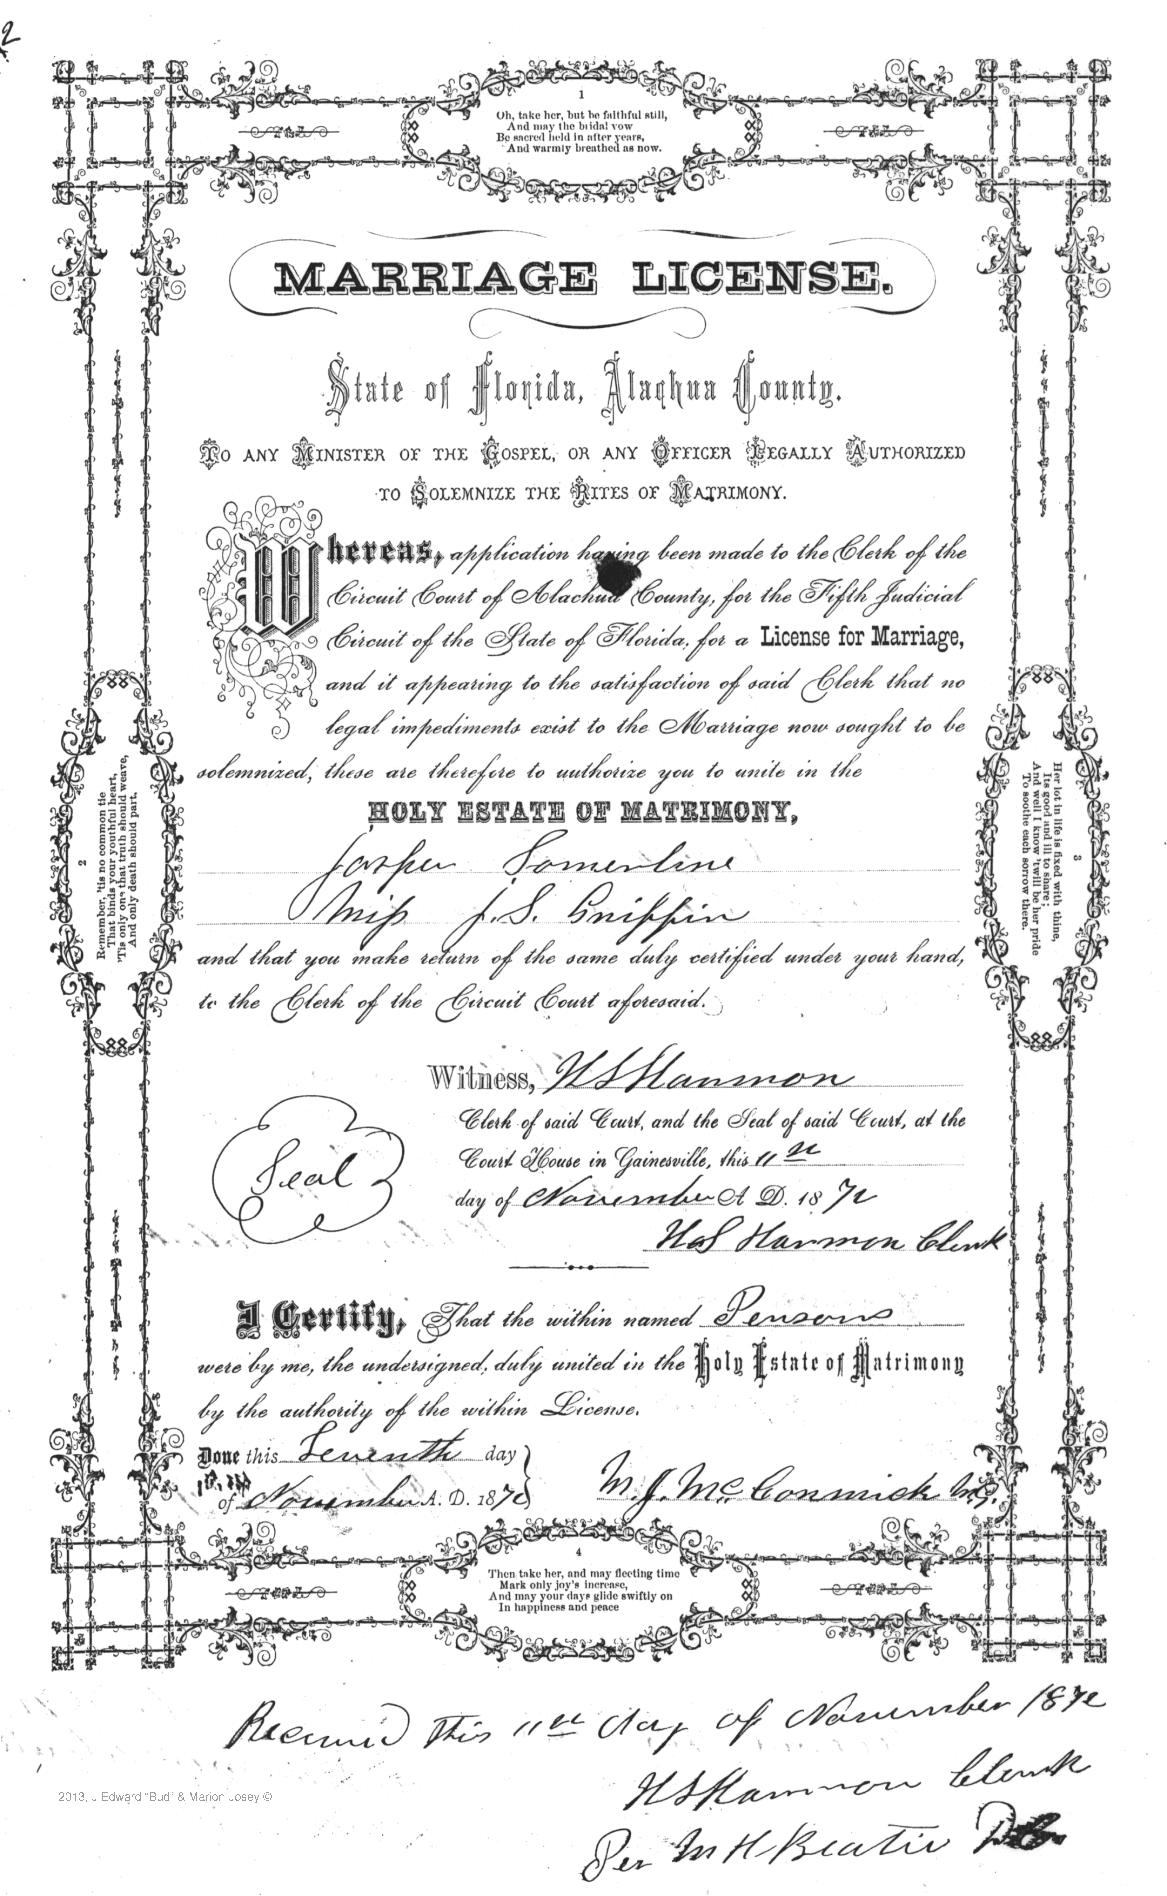 2
1
Oh, take her, but be faithful still,
And may the bridal vow
Be sacred held in after years,
And warmly breathed as now.
MARRIAGE LICENSE.
State of Florida, Alachua County.
TO ANY MINISTER OF THE GOSPEL, OR ANY OFFICER LEGALLY AUTHORIZED
TO SOLEMNIZE THE RITES OF MATRIMONY.
Whereas, application having been made to the Clerk of the
Circuit Court of Alachua County, for the Fifth Judicial
Circuit of the State of Florida, for a License for Marriage,
and it appearing to the satisfaction of said Clerk that no
legal impediments exist to the Marriage now sought to be
solemnized; these are therefore to authorize you to unite in the
HOLY ESTATE OF MATRIMONY,
Jasper Somerline
Miss J. S. Griffin
and that you make return of the same duly certified under your hand,
to the Clerk of the Circuit Court aforesaid.
2
Remember, 'tis no common tie
That binds your youthful heart,
'Tis only one that truth should weave,
And only death should part.
3
Her lot in life is fixed with thine,
Its good and ill to share;
And well I know 'twill be her pride
To soothe each sorrow there.
Witness, H S Harmon
Clerk of said Court, and the Seal of said Court, at the
Court House in Gainesville, this 11th
day of November A D. 1872
Seal
H S Harmon Clerk
I Certify, That the within named Persons
were by me, the undersigned, duly united in the Holy Estate of Matrimony
by the authority of the within License.
Done this Seventh day
of November A. D. 187
M. J. McCormick M.G.
4
Then take her, and may fleeting time
Mark only joy's increase,
And may your days glide swiftly on
In happiness and peace
Received this 11th day of November 1872
H S Harmon Clerk
Per M H Beatie
2013, J Edward "Bud" & Marion Josey ©